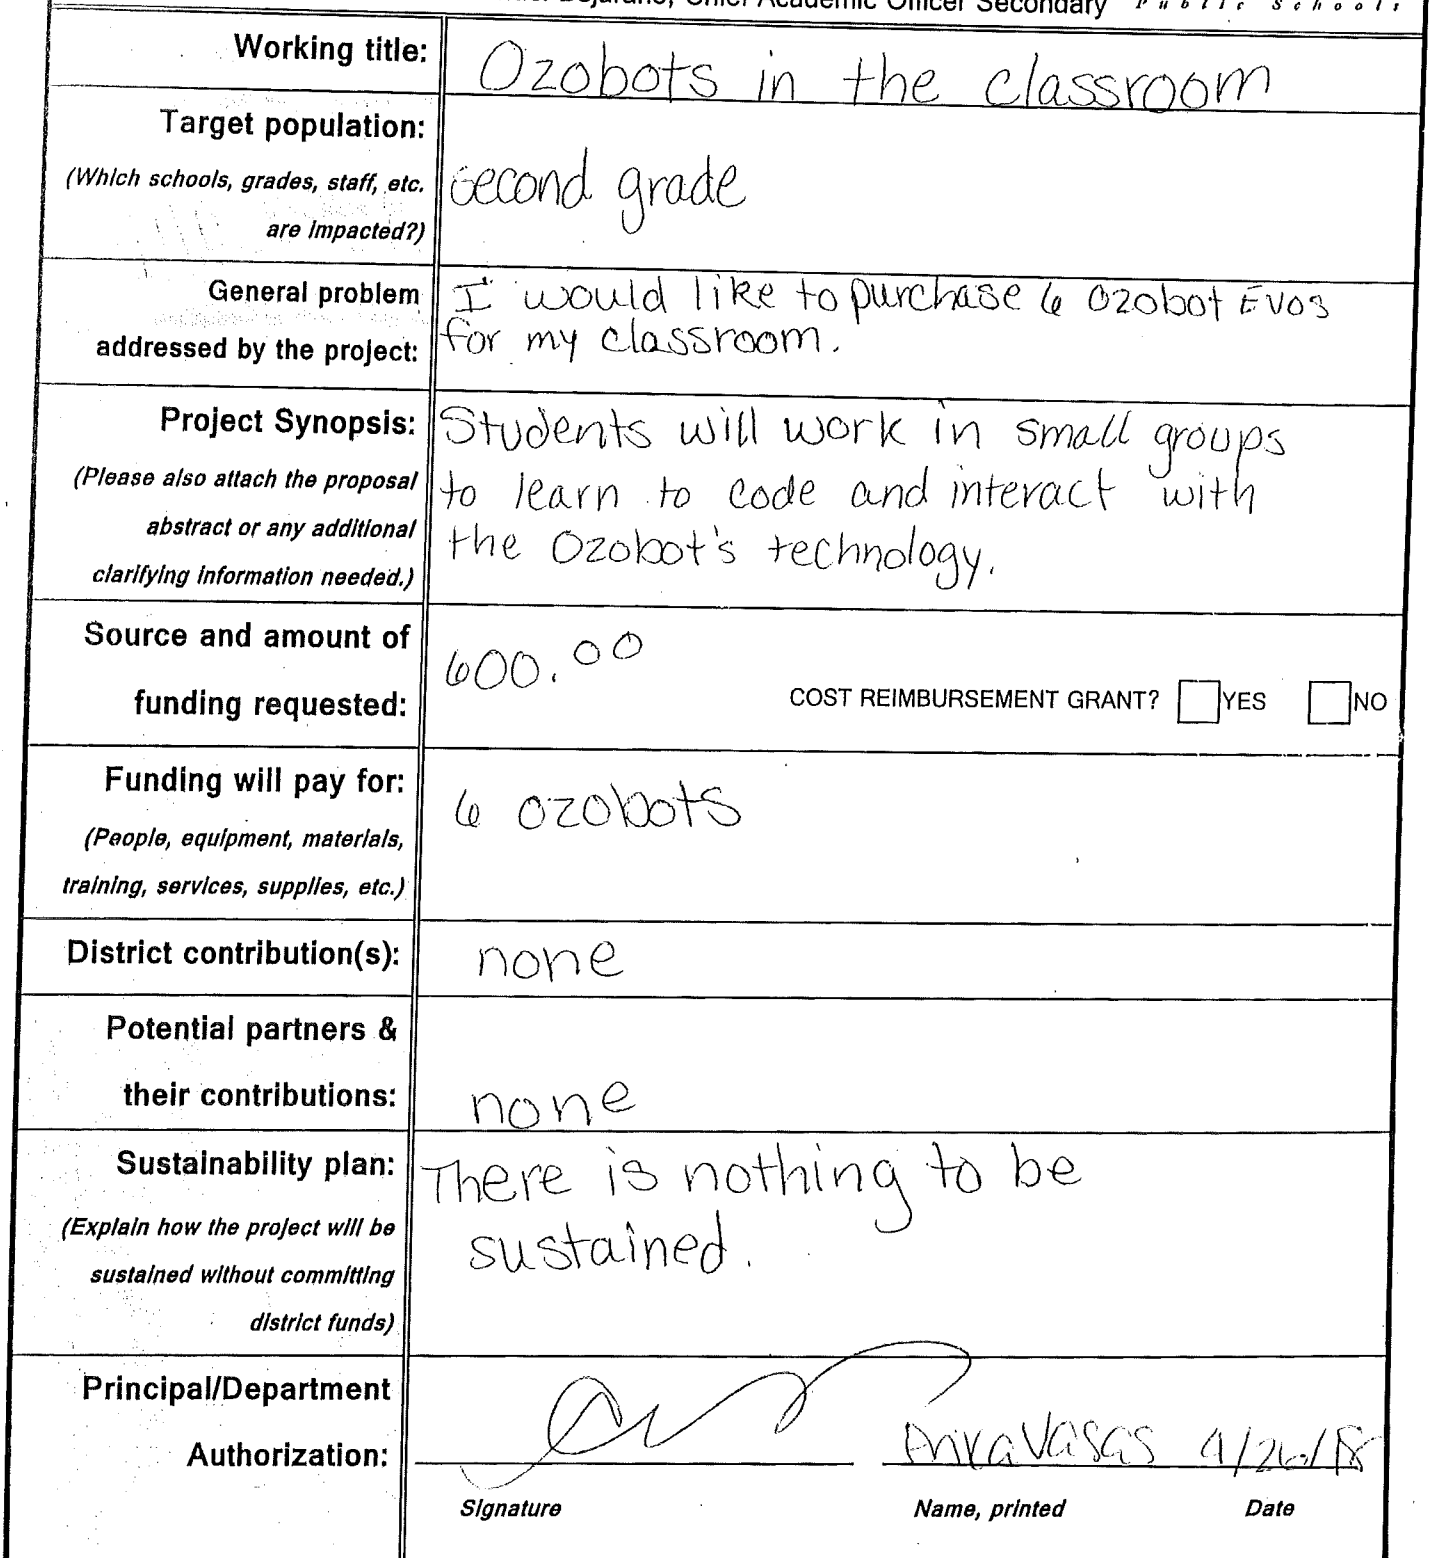 Chief Academic Officer Secondary Public Schools
Working title: Ozobots in the classroom
Target population:
(Which schools, grades, staff, etc.
are impacted?)
second grade
General problem
addressed by the project:
I would like to purchase 6 Ozobot Evos
for my classroom.
Project Synopsis:
(Please also attach the proposal
abstract or any additional
clarifying information needed.)
Students will work in small groups
to learn to code and interact with
the Ozobot's technology.
Source and amount of
funding requested:
600.00
COST REIMBURSEMENT GRANT? YES NO
Funding will pay for:
(People, equipment, materials,
training, services, supplies, etc.)
6 ozobots
District contribution(s): none
Potential partners &
their contributions:
none
Sustainability plan:
(Explain how the project will be
sustained without committing
district funds)
There is nothing to be
sustained.
Principal/Department
Authorization:
Signature Name, printed Date